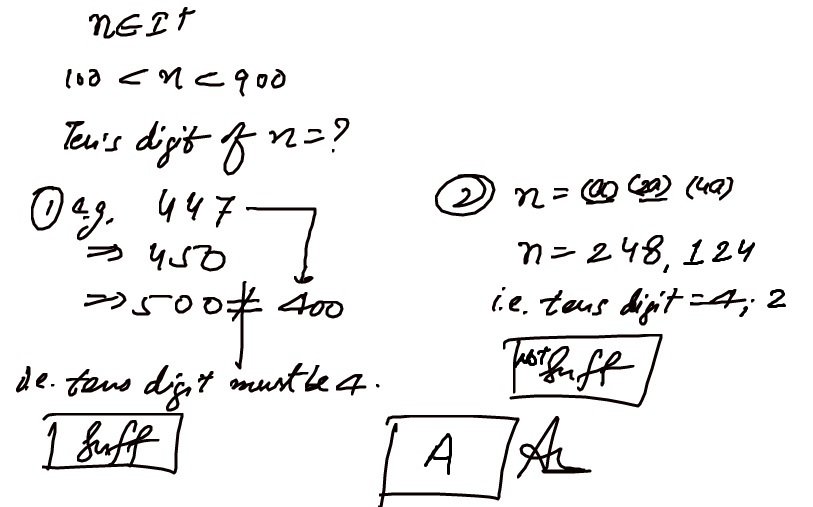 n∈I⁺
100 < n < 900
Ten's digit of n=?
① e.g. 447
⇒ 450
⇒ 500 ≠ 400
i.e. tens digit must be 4.
Suff
② n = (a) (2a) (4a)
n = 248, 124
i.e. tens digit = 4, 2
Not Suff
A